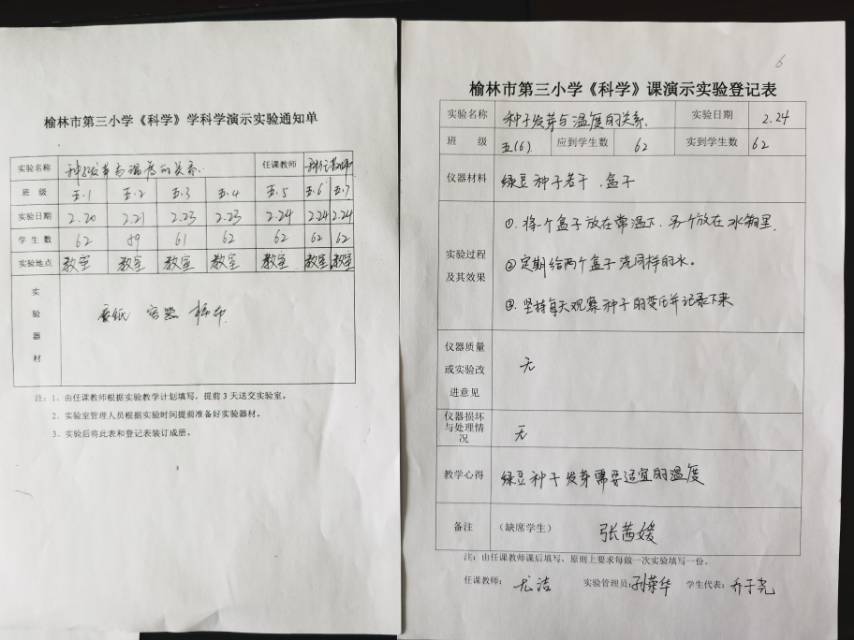 榆林市第三小学《科学》学科学演示实验通知单
实验名称 种子发芽与温度的关系 任课教师
班 级 五.1 五.2 五.3 五.4 五.5 五.6 五.7
实验日期 2.20 2.21 2.23 2.23 2.24 2.24 2.24
学 生 数 62 59 61 62 62 62 62
实验地点 教室 教室 教室 教室 教室 教室 教室
实验器材
注：1、由任课教师根据实验教学计划填写，提前 3 天送交实验室。
2、实验室管理人员根据实验时间提前准备好实验器材。
3、实验后将此表和登记表装订成册。
6
榆林市第三小学《科学》课演示实验登记表
实验名称 种子发芽与温度的关系. 实验日期 2.24
班 级 五(6) 应到学生数 62 实到学生数 62
仪器材料 绿豆种子若干 .盒子
实验过程及其效果
①. 将一个盒子放在常温下. 另一个放在冰箱里.
②定期给两个盒子浇同样的水。
③. 坚持每天观察种子的变化并记录下来
仪器质量或实验改进意见 无
仪器损坏与处理情况 无
教学心得 绿豆种子发芽需要适宜的温度
备注 （缺席学生） 张茜媛
注：由任课教师课后填写，原则上要求每做一次实验填写一份。
任课教师： 尤洁 实验管理员：孙荣华 学生代表：乔于尧